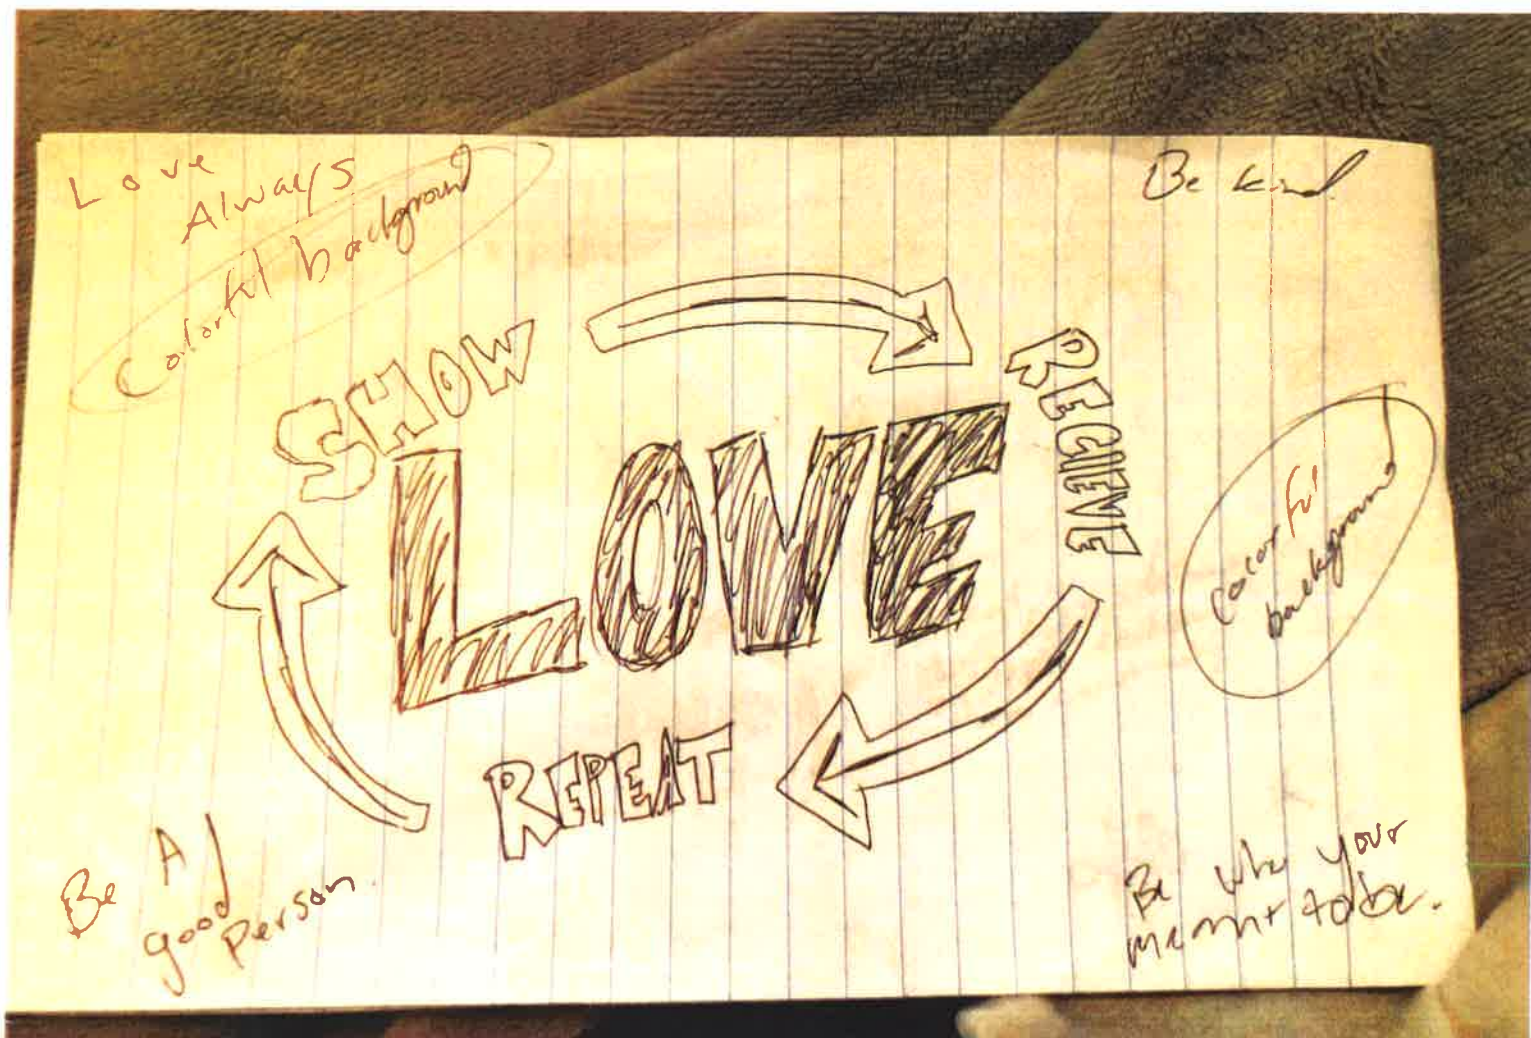 Love
Always
Colorful background
Be kind
SHOW
RECIEVE
LOVE
colorful
background
REPEAT
Be A
good
person.
Be who your
meant to be.